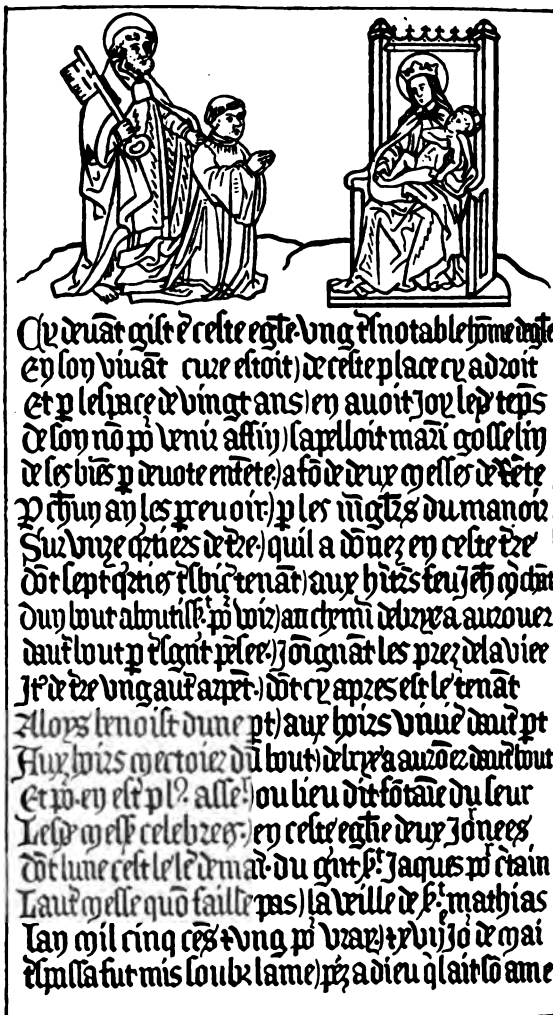 Cy devāt gist ē ceste egl̄e vng tr̄snotable hōme degl̄e
En son vivāt cure estoit) de ceste place cy adroit
Et p̄ lespace de vingt ans) en avoit Joy led̄ tēps
de son nō pō venir affin) sapelloit mar̄i gosselin
de ses biēs p̄ devote entēte) a fōde deux messes de rēte
P ch̄un an les
Sur vnze q̄rtiers de tr̄e) quil a dōnez en ceste tr̄e
dōt sept q̄rtiers
dun bout aboutiss̄. pō voir) au chemī de brye a aurouer
daut̄ bout p̄ Joīgnāt les prez de la viee
Jt̄ de tr̄e vng aut̄ arpēt) dōt cy apres est le tenāt
Aloys benoist dune pt) aux hoirs daut̄ pt
Aux hoirs mectoier dū bout) de brye a aurōer daut̄ bout
Et pō. en est pl? asse) ou lieu dit fōtaīe du seur
celebrees) en ceste egl̄ie deux Jōnees
dōt lune cest le lēdemaī. du Jaques pō c̄tain
Laut̄ messe quō faisse pas) la veille de s̄t mathias
Lan mil cinq cēs ⁊ vng pō vray) xviJ Jō de mai
tr̄spassa fut mis soubz lame) p̄ez a dieu q̄l ait sō ame